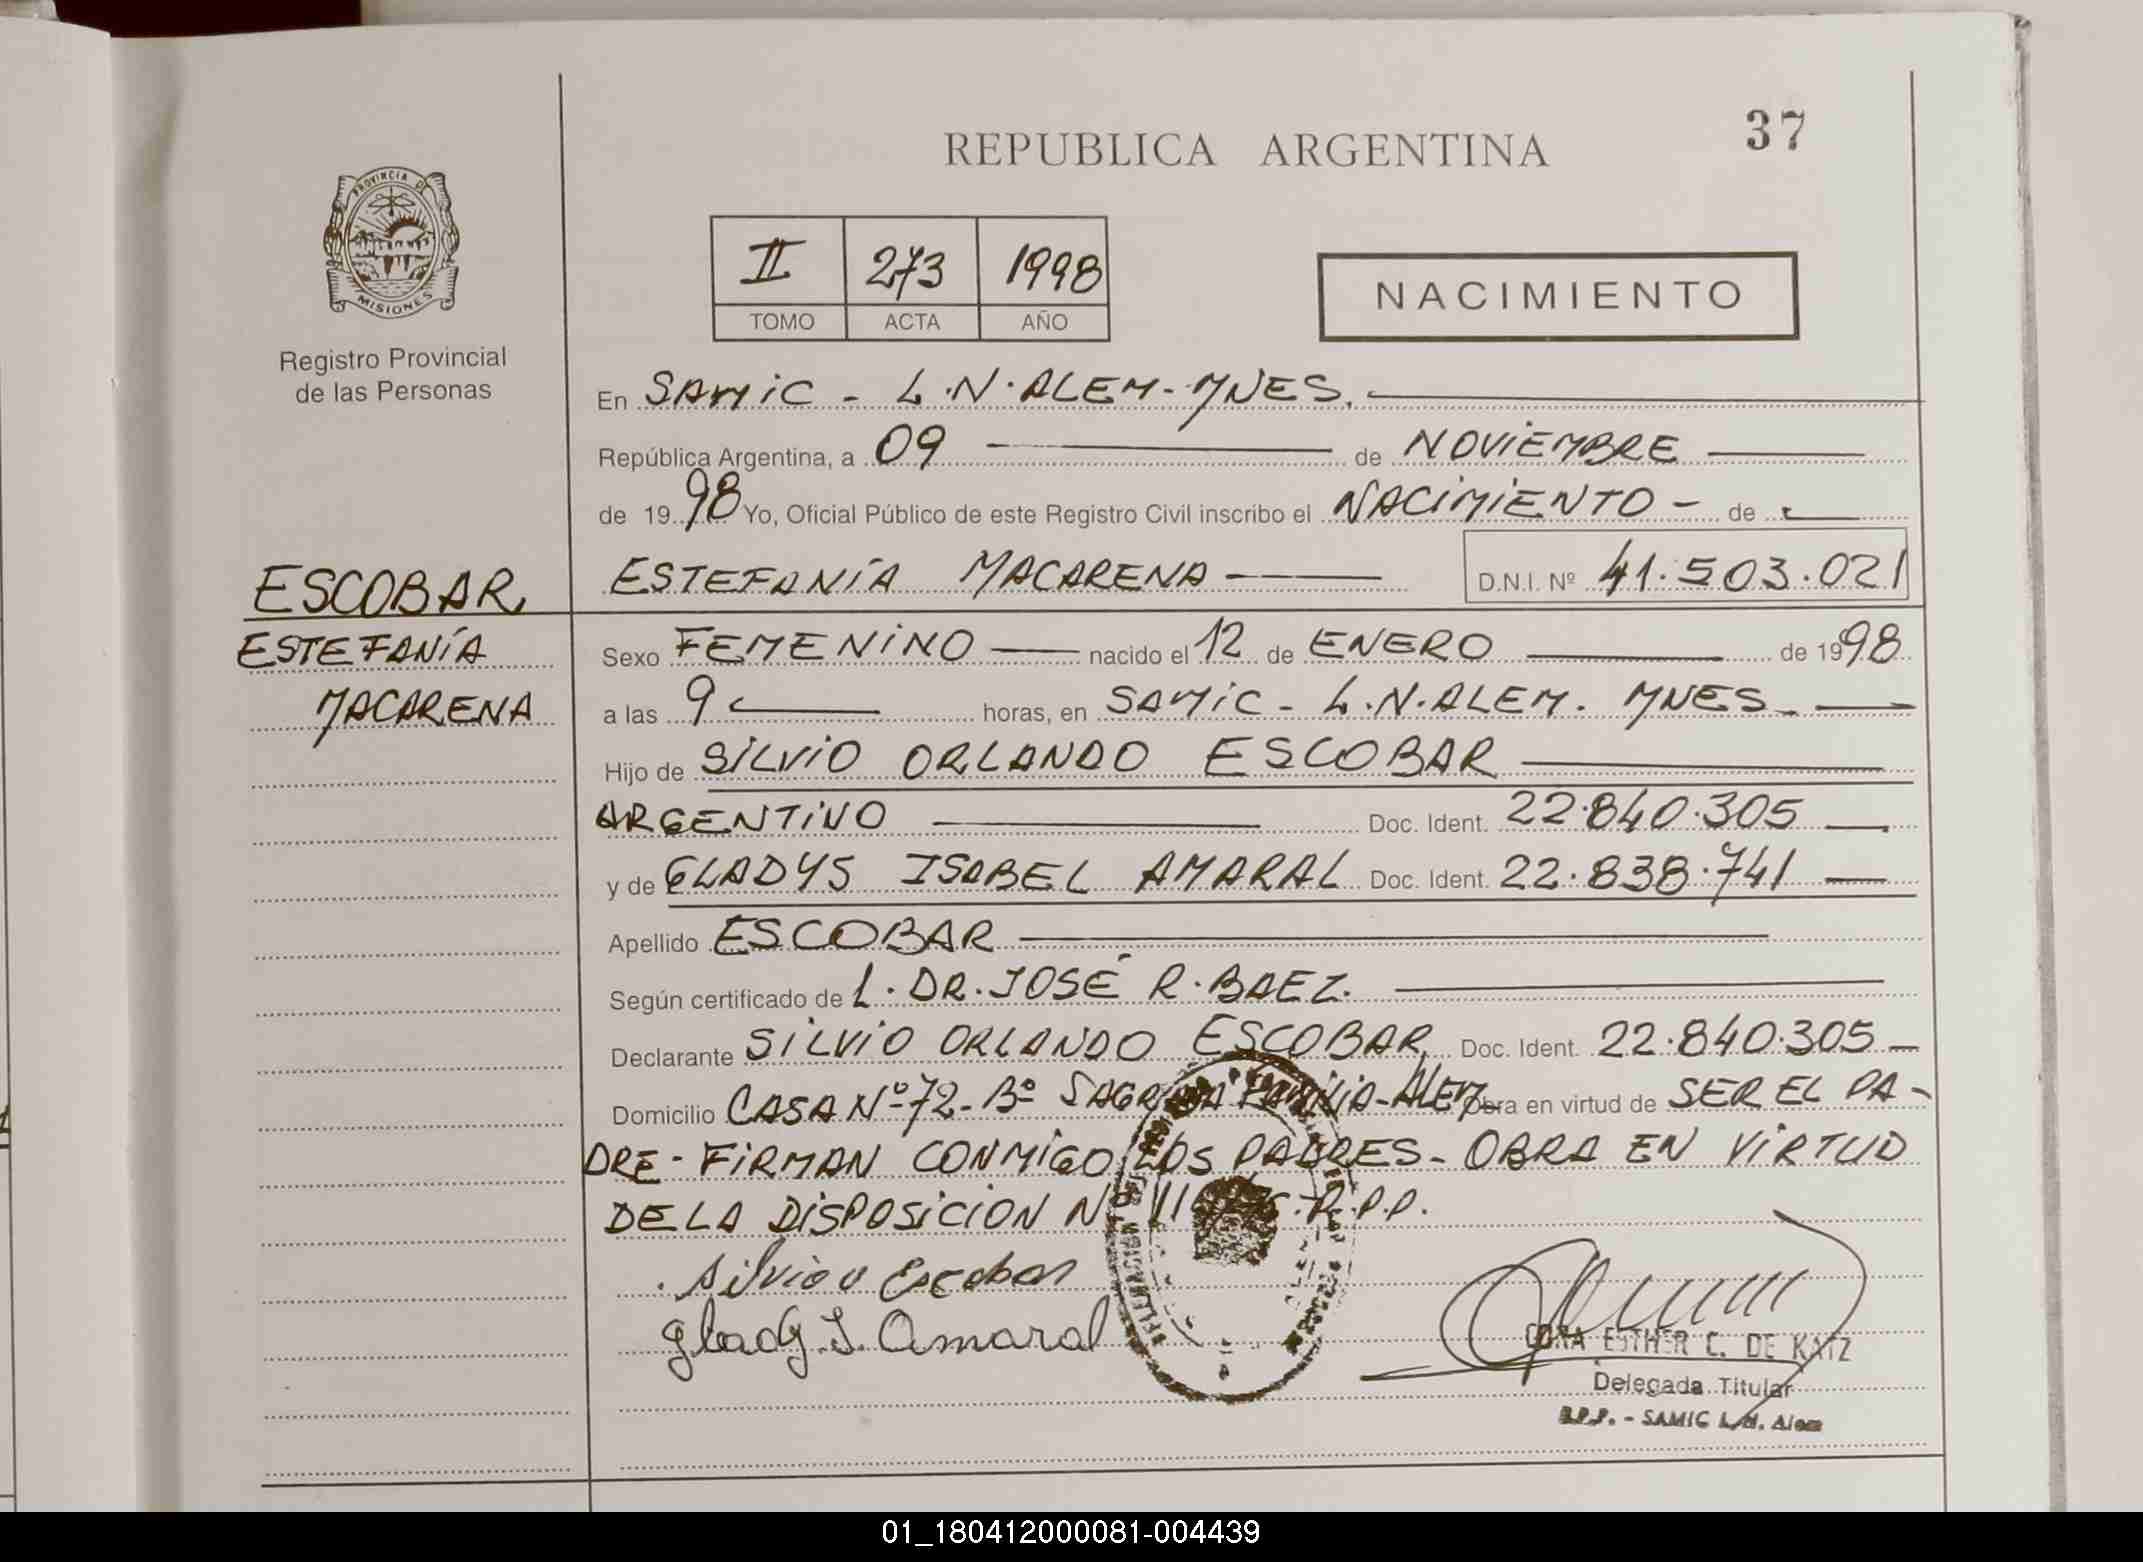 REPUBLICA ARGENTINA
37
PROVINCIA DE
MISIONES
Registro Provincial
de las Personas
II 273 1998
TOMO ACTA AÑO
NACIMIENTO
En SAMIC - L.N.ALEM-MNES.
República Argentina, a 09 de NOVIEMBRE
de 1998 Yo, Oficial Público de este Registro Civil inscribo el NACIMIENTO - de
ESTEFANÍA MACARENA D.N.I. Nº 41.503.021
ESCOBAR,
ESTEFANÍA
MACARENA
Sexo FEMENINO nacido el 12 de ENERO de 1998
a las 9 horas, en SAMIC - L.N.ALEM. MNES.
Hijo de SILVIO ORLANDO ESCOBAR
ARGENTINO Doc. Ident. 22.840.305
y de GLADYS ISABEL AMARAL Doc. Ident. 22.838.741
Apellido ESCOBAR
Según certificado de L. DR. JOSÉ R. BAEZ.
Declarante SILVIO ORLANDO ESCOBAR Doc. Ident. 22.840.305
Domicilio CASA Nº 72 - Bº SAGRADA FAMILIA - ALEM Obra en virtud de SER EL PA-
DRE - FIRMAN CONMIGO LOS PADRES - OBRA EN VIRTUD
DE LA DISPOSICION Nº R.P.P.
Silvio O Escobar
Glady I. Amaral
CORA ESTHER C. DE KATZ
Delegada Titular
R.P.P. - SAMIC L.N. Alem
01_180412000081-004439